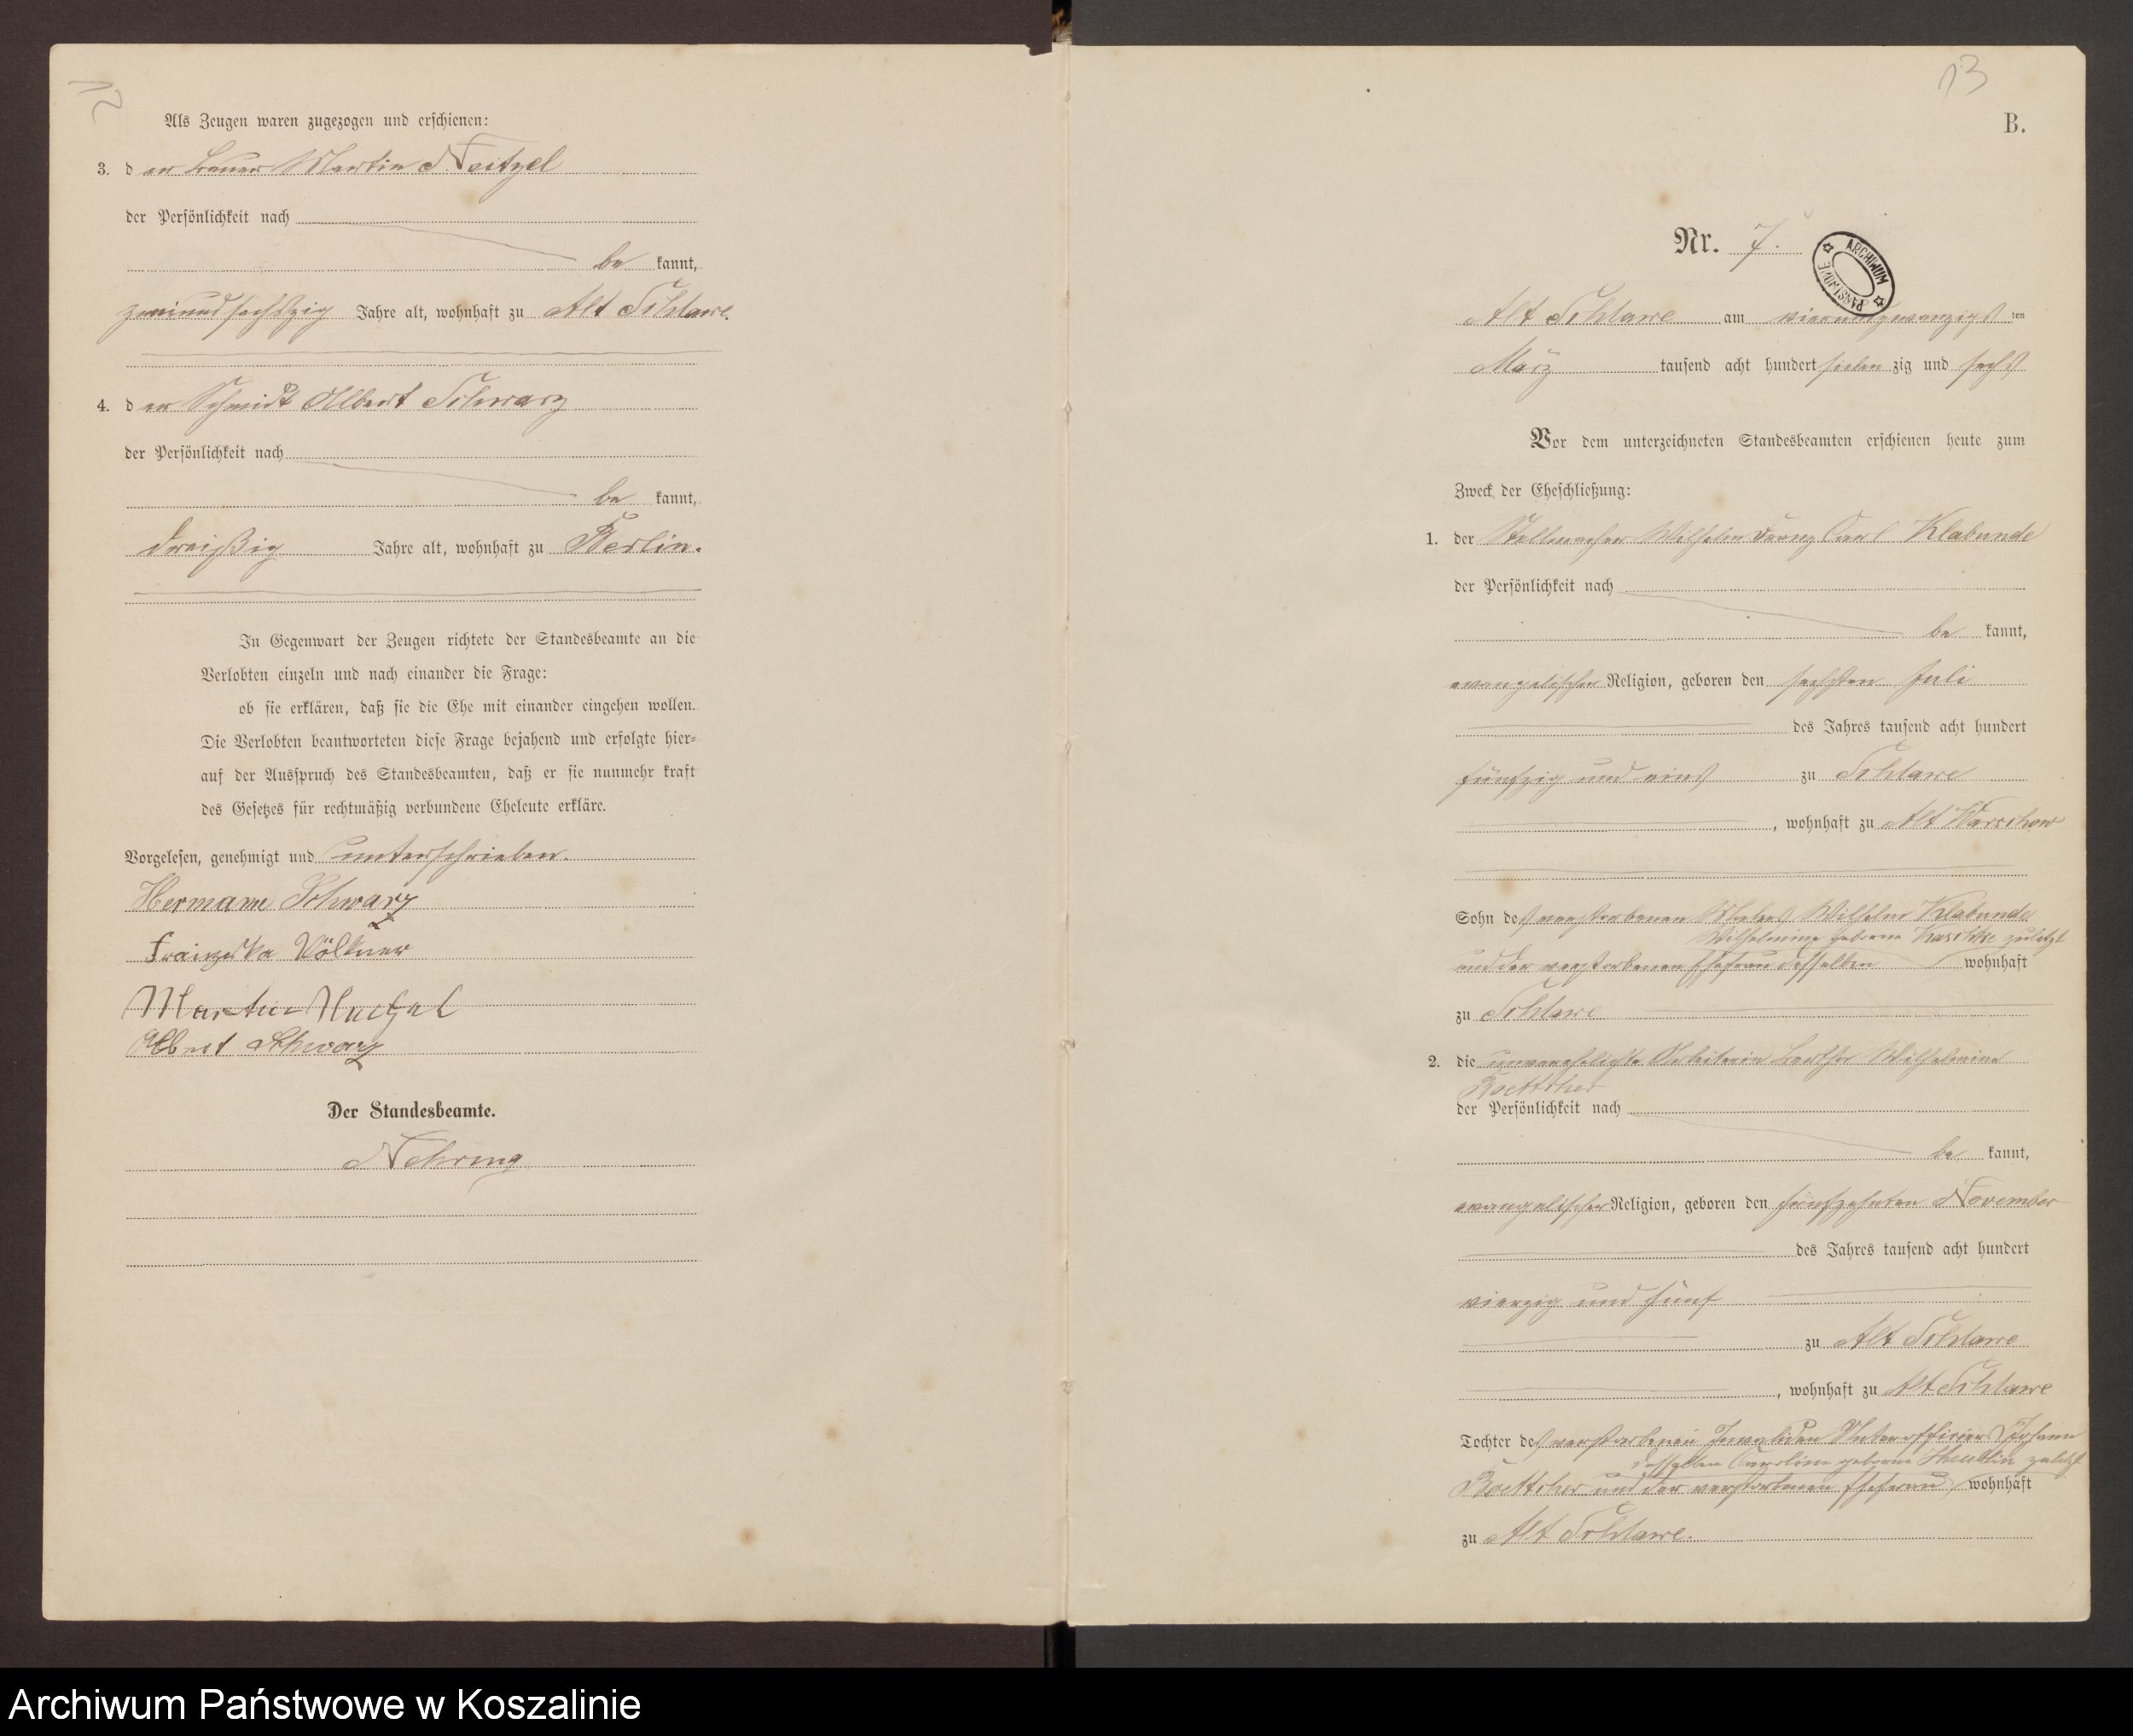 Als Zeugen waren zugezogen und erschienen:
3. der Bauer Martin Neitzel
der Persönlichkeit nach
be kannt,
zweiundsechszig Jahre alt, wohnhaft zu Alt Schlawe.
4. der Schmidt Albert Schwarz
der Persönlichkeit nach
be kannt,
dreißig Jahre alt, wohnhaft zu Berlin.
In Gegenwart der Zeugen richtete der Standesbeamte an die
Verlobten einzeln und nach einander die Frage:
ob sie erklären, daß sie die Ehe mit einander eingehen wollen.
Die Verlobten beantworteten diese Frage bejahend und erfolgte hier-
auf der Ausspruch des Standesbeamten, daß er sie nunmehr kraft
des Gesetzes für rechtmäßig verbundene Eheleute erkläre.
Vorgelesen, genehmigt und unterschrieben.
Hermann Schwarz
Franziska Völkner
Martin
Albert Schwarz
Der Standesbeamte.
Nehring
13
B.
Nr. 7.
ARCHIWUM PAŃSTWOWE
Alt Schlawe am vierundzwanzigsten
März tausend acht hundert sieben zig und sechs
Vor dem unterzeichneten Standesbeamten erschienen heute zum
Zweck der Eheschließung:
1. der Stellmacher Wilhelm Franz Carl Klabunde
der Persönlichkeit nach
be kannt,
evangelischer Religion, geboren den sechsten Juli
des Jahres tausend acht hundert
fünfzig und eins zu Schlawe
, wohnhaft zu Alt Warschow
Sohn des verstorbenen Wilhelm Klabunde
Wilhelmine geborene Kaschke zuletzt
und der verstorbenen Ehefrau desselben wohnhaft
zu Schlawe
2. die unverehelichte Arbeiterin Bertha Wilhelmine
Boettcher
der Persönlichkeit nach
be kannt,
evangelischer Religion, geboren den fünfzehnten November
des Jahres tausend acht hundert
vierzig und fünf
zu Alt Schlawe
, wohnhaft zu Alt Schlawe
Tochter des verstorbenen Invaliden Unterofficiers Johann
desselben Caroline geborene zuletzt
Boettcher und der verstorbenen Ehefrau wohnhaft
zu Alt Schlawe.
Archiwum Państwowe w Koszalinie